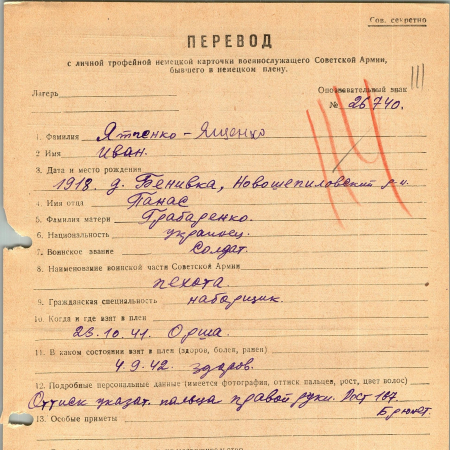 Сов. секретно
ПЕРЕВОД
с личной трофейной немецкой карточки военнослужащего Советской Армии,
бывшего в немецком плену.
Лагерь
Опознавательный знак
№ 26740.
1. Фамилия Ятпенко-Ященко
2 Имя Иван.
3. Дата и место рождения
1918. д. Бенивка, Новошепиловский р-н.
4. Имя отца Панас
5. Фамилия матери Грабаренко.
6. Национальность украинец.
7. Воинское звание Солдат.
8. Наименование воинской части Советской Армии
пехота.
9. Гражданская специальность наборщик.
10. Когда и где взят в плен
23.10.41. Орша.
11. В каком состоянии взят в плен (здоров, болен, ранен)
4.9.42. здоров.
12. Подробные персональные данные (имеется фотография, оттиск пальцев, рост, цвет волос)
Оттиск указат. пальца правой руки. Рост 167.
Брюнет.
13. Особые приметы